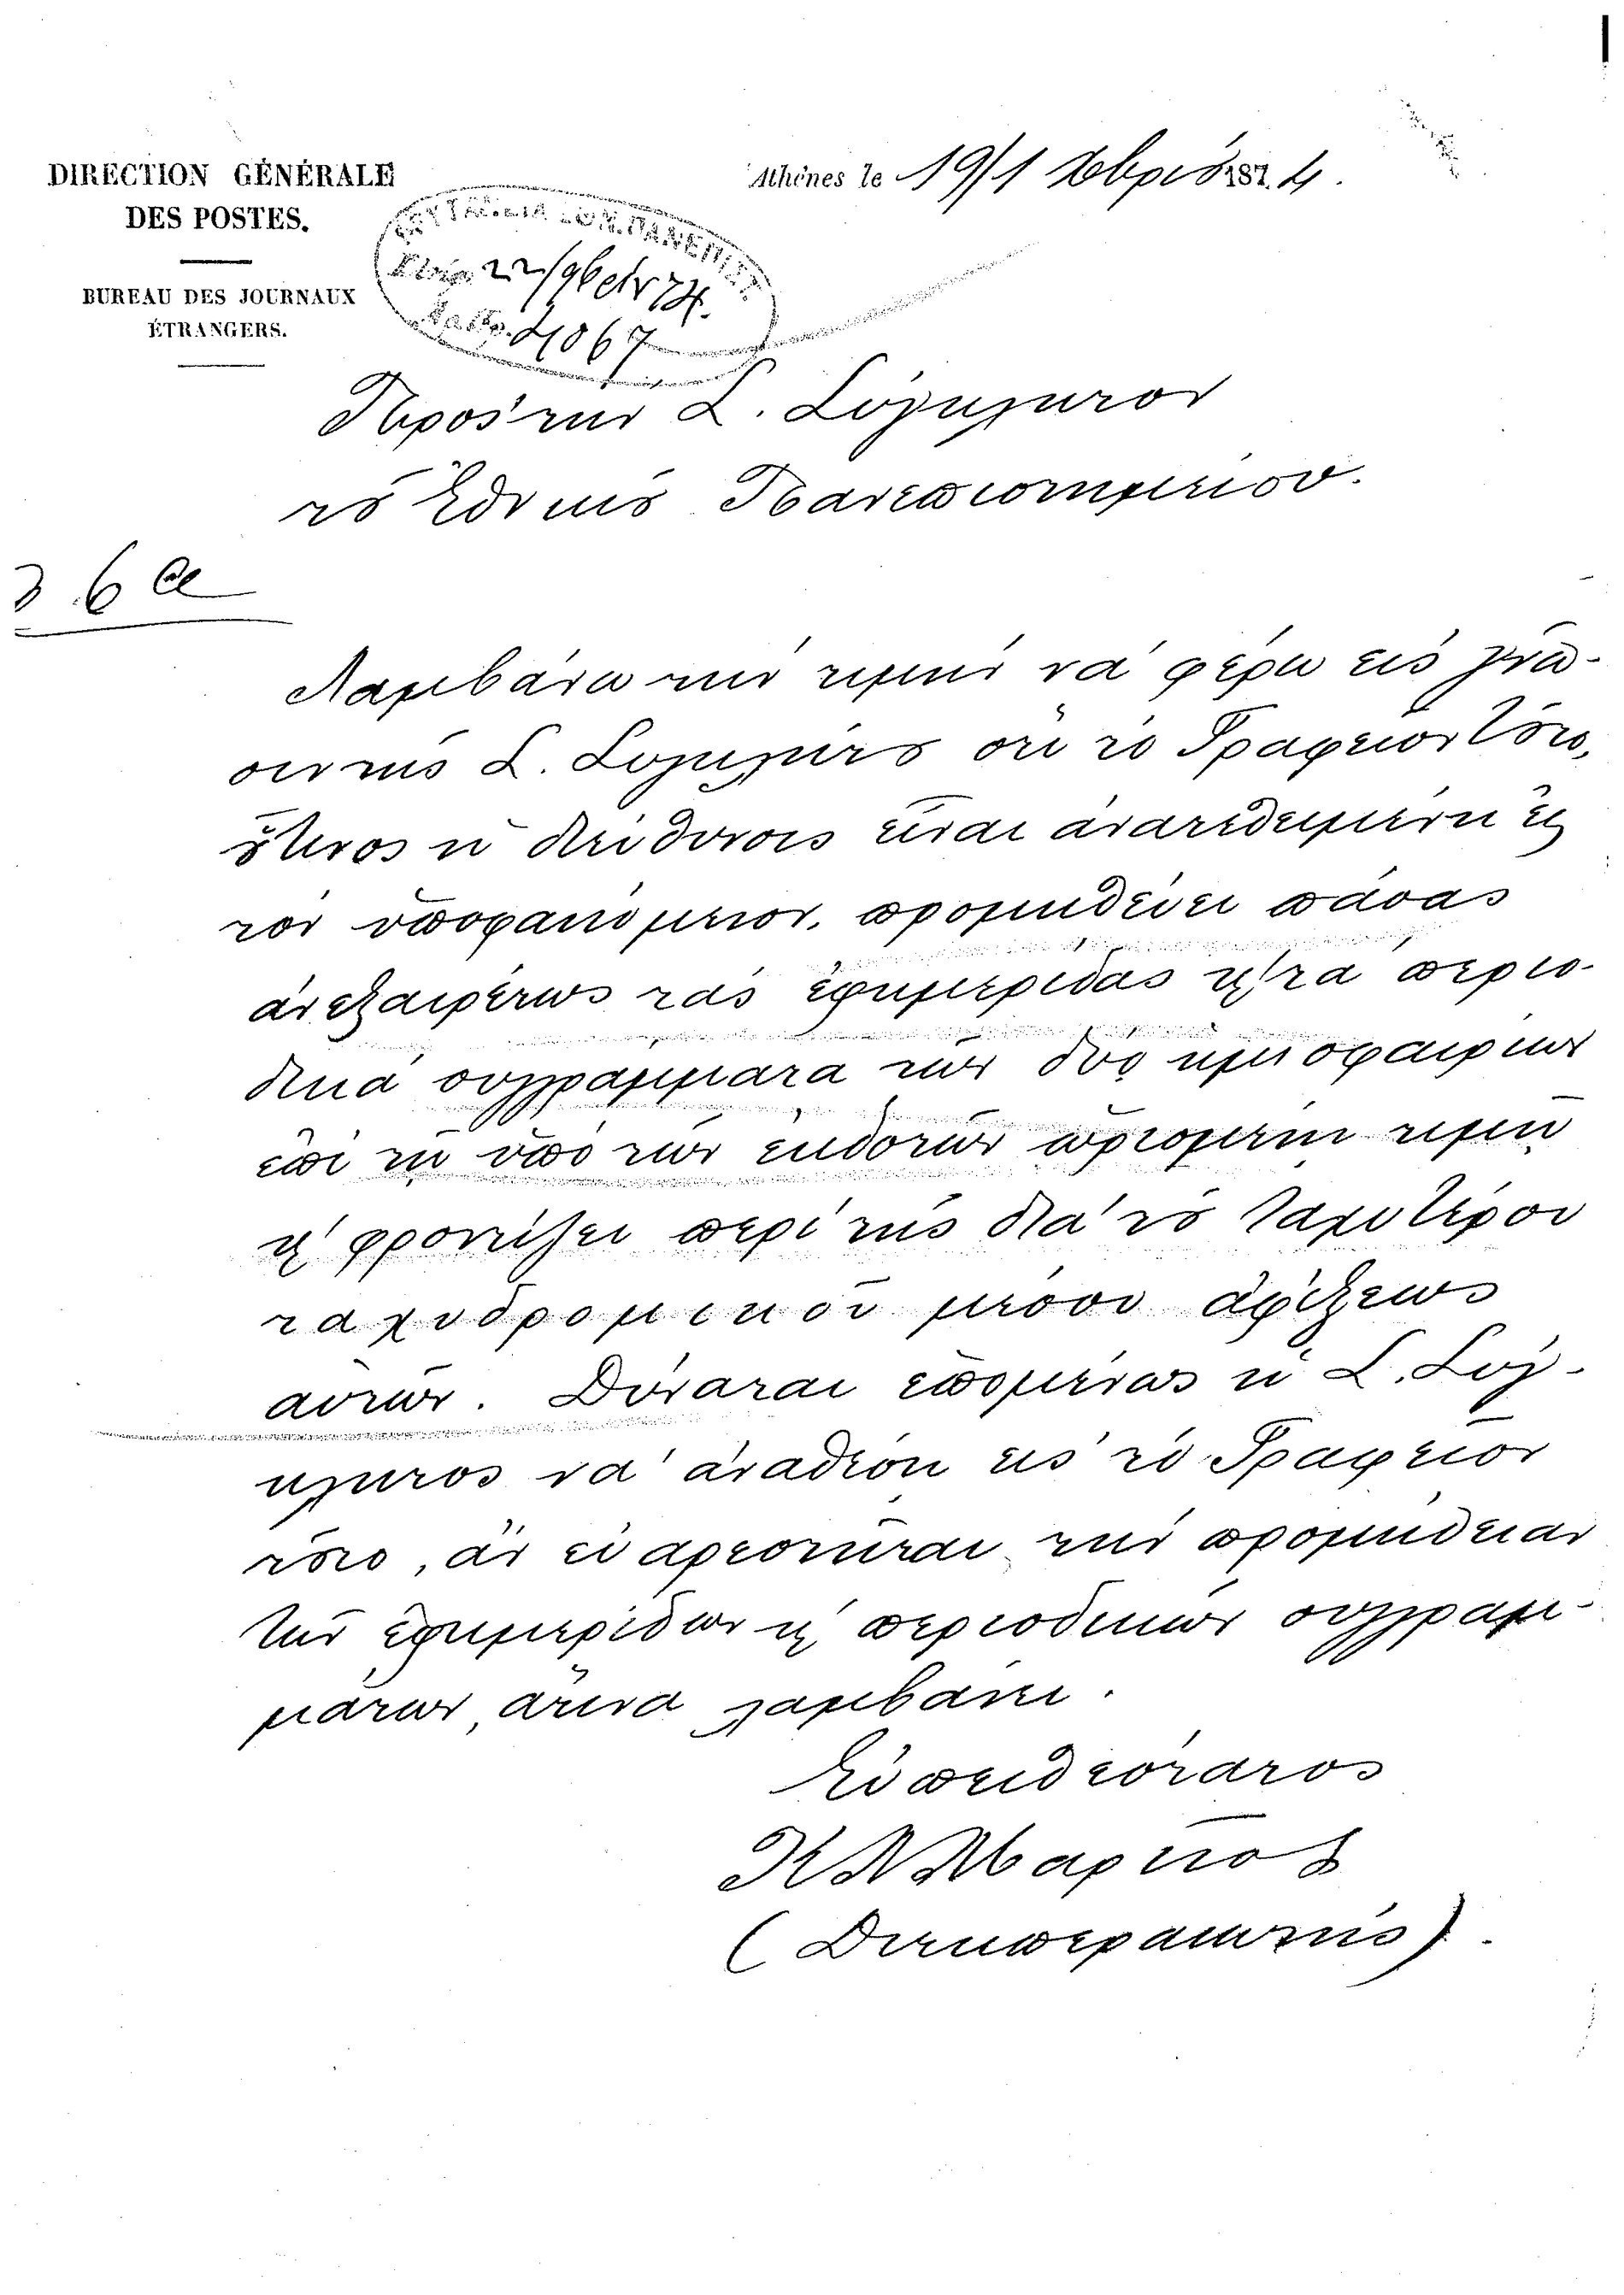 DIRECTION GÉNÉRALE
DES POSTES.
BUREAU DES JOURNAUX
ÉTRANGERS.
Athènes le 19/1 187.4.
22/9
4067
Πρὸς τὴν Σ. Σύγκλητον
τοῦ Ἐθνικοῦ Πανεπιστημείου.
Λαμβάνω τὴν τιμὴν νὰ φέρω εἰς γνῶ-
σιν τῆς Σ. Συγκλήτου ὅτι τὸ Γραφεῖον τοῦτο,
οὗτινος ἡ διεύθυνσις εἶναι ἀνατεθειμένη εἰς
τὸν ὑποφαινόμενον, προμηθεύει πάσας
ἀνεξαιρέτως τὰς ἐφημερίδας κ τὰ περιο-
δικὰ συγγράμματα τῶν δύο ἡμισφαιρίων
ἐπὶ τῇ ὑπὸ τῶν ἐκδοτῶν ὡρισμένῃ τιμῇ
κ φροντίζει περὶ τῆς διὰ τοῦ ταχυτέρου
ταχυδρομικοῦ μέσου ἀφίξεως
αὐτῶν. Δύναται ἑπομένως ἡ Σ. Σύγ-
κλητος νὰ ἀναθέσῃ εἰς τὸ Γραφεῖον
τοῦτο, ἂν εὐαρεστῆται τὴν προμήθειαν
τῶν ἐφημερίδων κ περιοδικῶν συγγραμ-
μάτων, ἅτινα λαμβάνει.
Εὐπειθέστατος